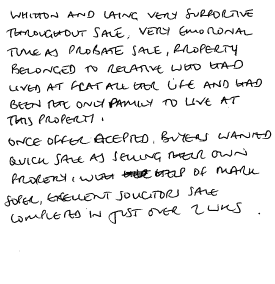 WHITTON AND LAING VERY SUPPORTIVE
THROUGHOUT SALE, VERY EMOTIONAL
TIME AS PROBATE SALE, PROPERTY
BELONGED TO RELATIVE WHO HAD
LIVED AT FLAT ALL HER LIFE AND HAD
BEEN THE ONLY FAMILY TO LIVE AT
THIS PROPERTY.
ONCE OFFER ACEPTED, BUYERS WANTED
QUICK SALE AS SELLING THEIR OWN
PROPERTY, WITH HELP OF MARK
SOPER, EXELLENT SOLICITORS SALE
COMPLETED IN JUST OVER 2 WKS.